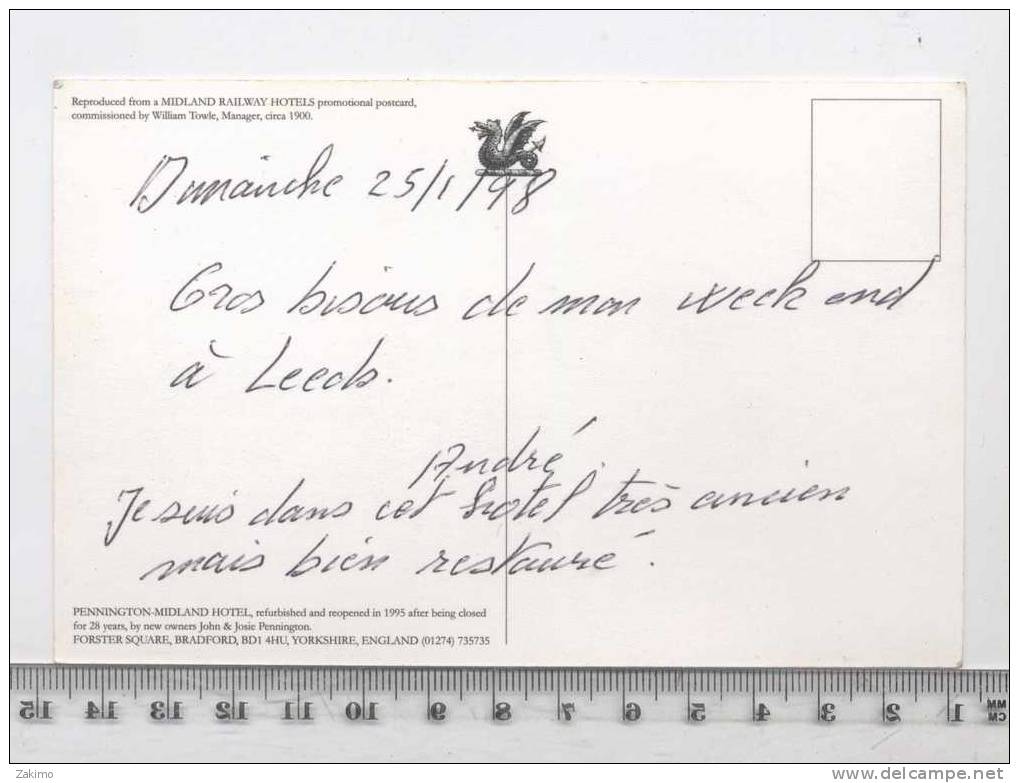 Reproduced from a MIDLAND RAILWAY HOTELS promotional postcard,
commissioned by William Towle, Manager, circa 1900.
Dimanche 25/1/98
Gros bisous de mon week end
à Leeds.
André
Je suis dans cet hotel très ancien
mais bien restauré.
PENNINGTON-MIDLAND HOTEL, refurbished and reopened in 1995 after being closed
for 28 years, by new owners John & Josie Pennington.
FORSTER SQUARE, BRADFORD, BD1 4HU, YORKSHIRE, ENGLAND (01274) 735735
15 14 13 12 11 10 9 8 7 6 5 4 3 2 1 MM
CM
Zakimo
www.delcampe.net